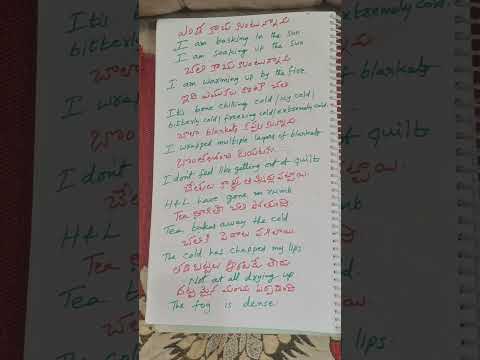 ఎండ కాచు కుంటున్నాను
I am basking in the sun
I am soaking up the sun
చలి కాచు కుంటున్నాను
I am warming up by the fire
ఇది ఎముకలు కొరికే చలి
It's bone chilling cold/icy cold/
bitterly cold/freezing cold/extremely cold
చాలా blankets కప్పు కున్నాను
I wrapped multiple layers of blankets
I don't feel like getting out of quilt
చేతులు కాళ్లు
H&L have gone numb
Tea తాగితే చలి పోతుంది
Tea takes away the cold
చలికి పెదాలు పగిలాయి
The cold has chapped my lips
Not at all drying up
మంచు
The fog is dense